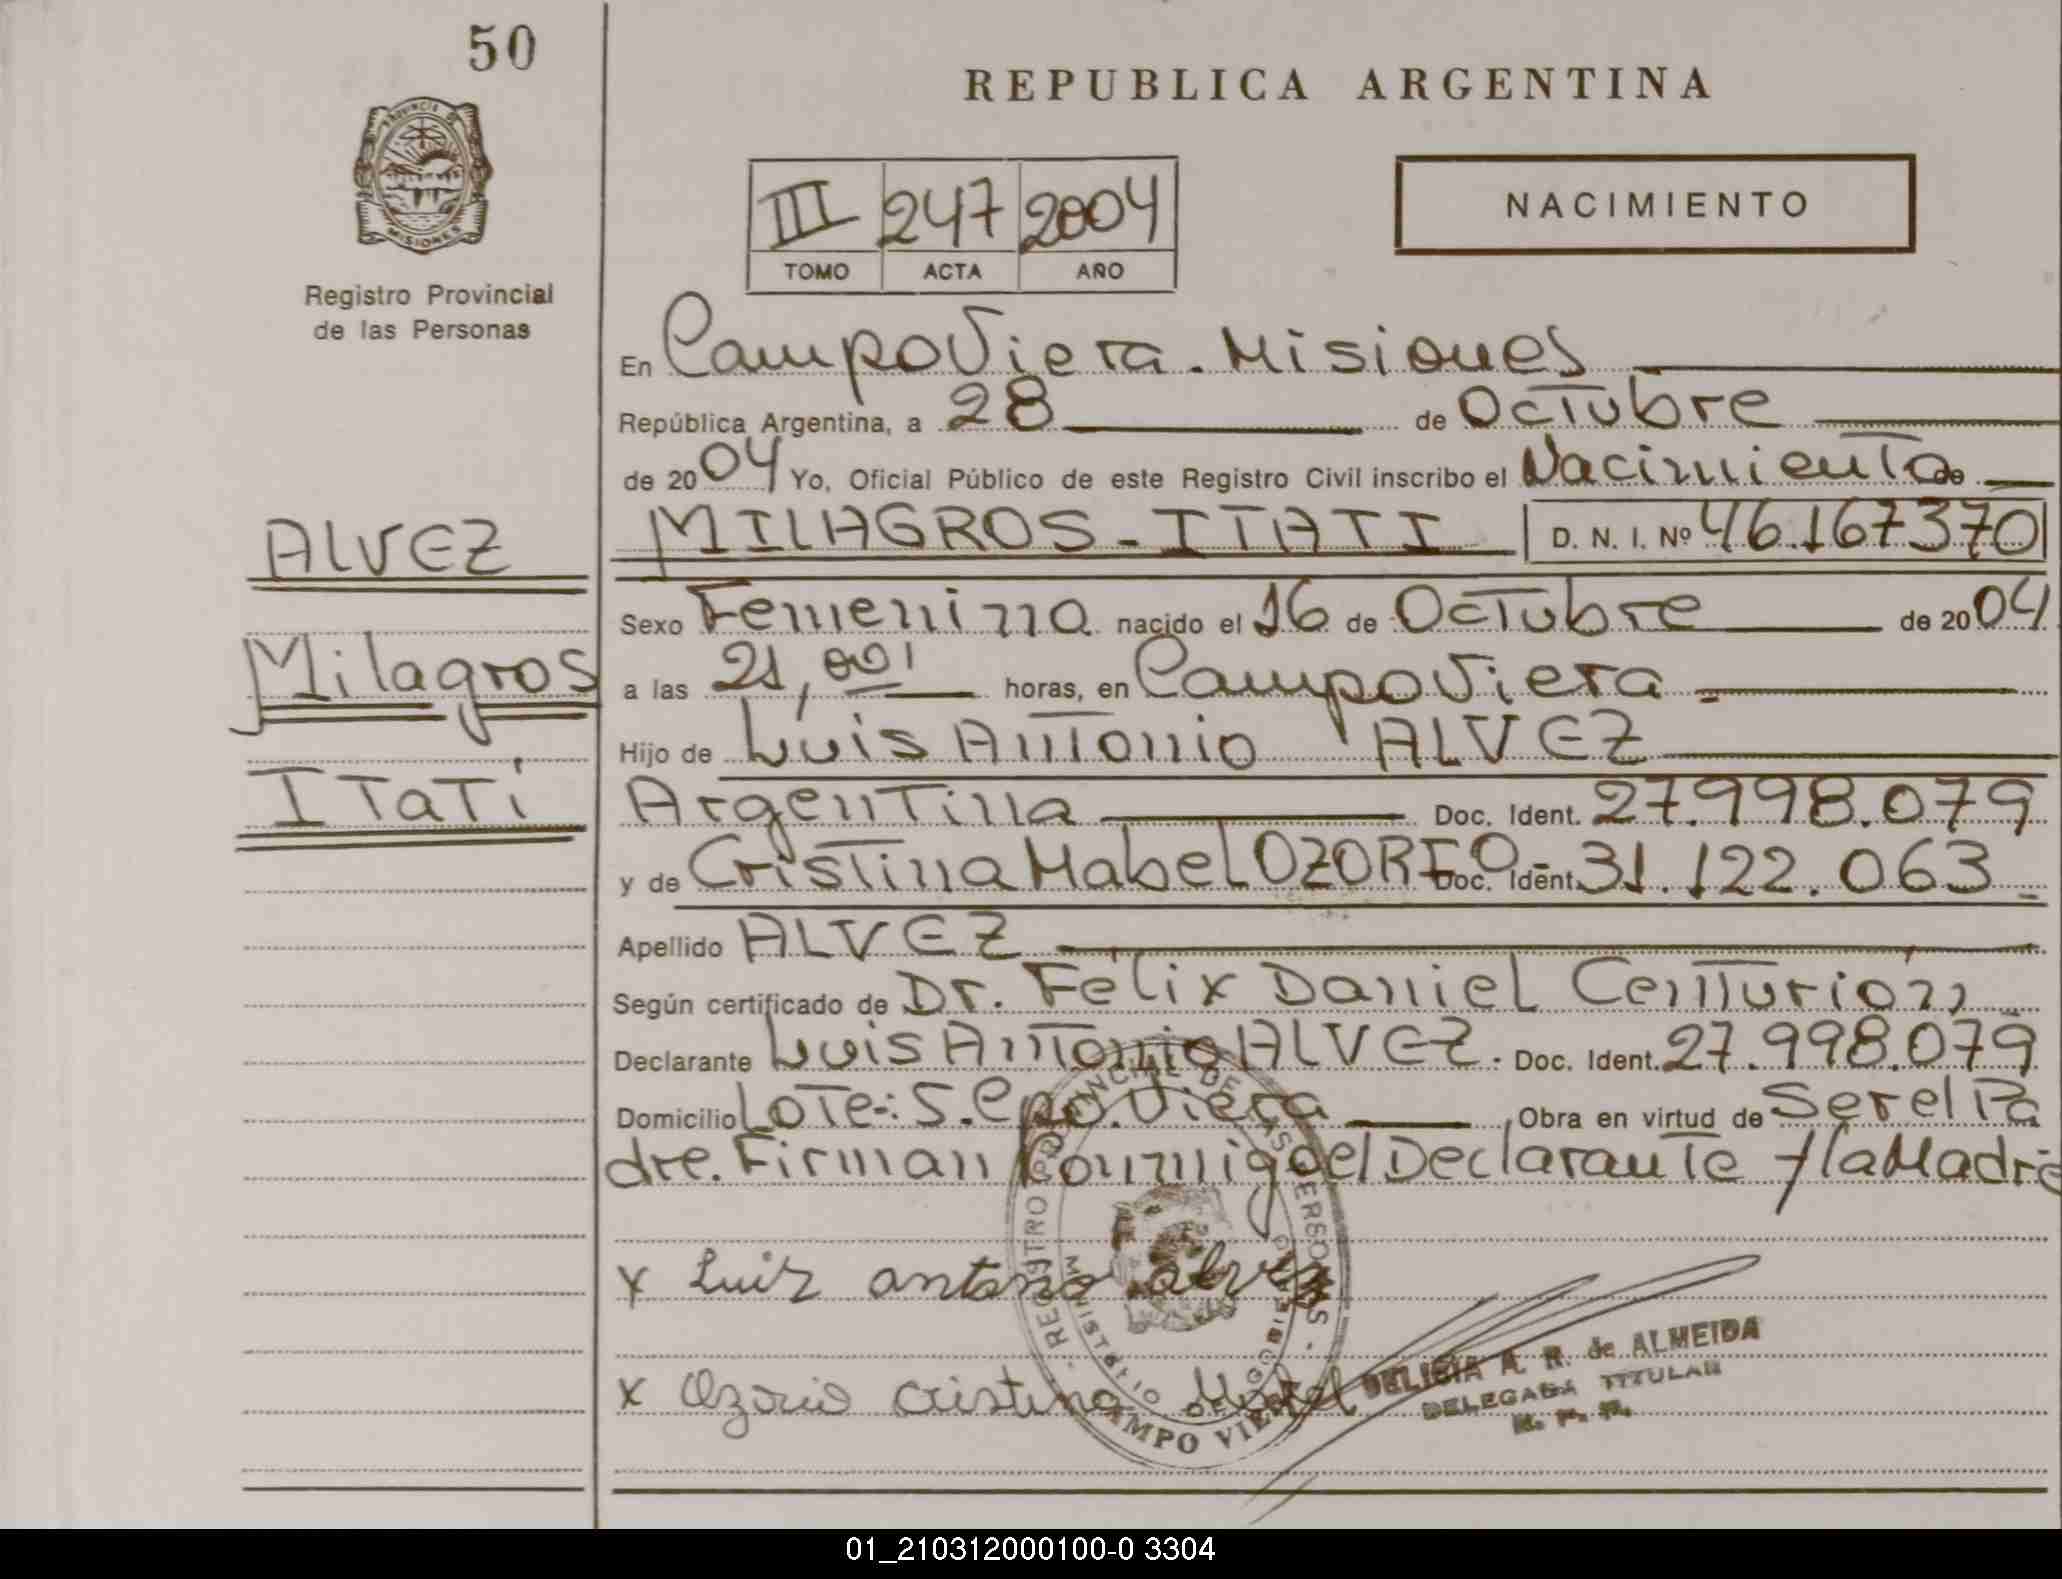 50
REPUBLICA ARGENTINA
PROVINCIA DE
MISIONES
Registro Provincial
de las Personas
III 247 2004
TOMO ACTA AÑO
NACIMIENTO
En Campo Viera. Misiones
República Argentina, a 28 de Octubre
de 2004 Yo, Oficial Público de este Registro Civil inscribo el Nacimiento de
ALVEZ
Milagros
Itatí
MILAGROS - ITATI D. N. I. Nº 46.167370
Sexo Femenino nacido el 16 de Octubre de 2004
a las 21,00' horas, en Campo Viera -
Hijo de Luis Antonio ALVEZ
Argentina Doc. Ident. 27.998.079
y de Cristina Mabel OZORIO - Doc. Ident. 31.122.063 -
Apellido ALVEZ
Según certificado de Dr. Félix Daniel Centurión
Declarante Luis Antonio ALVEZ. Doc. Ident. 27.998.079
Domicilio Lote-: 5. Cpo. Viera Obra en virtud de Ser el Pa
dre. Firman Conmigo el Declarante y la Madre
x Luiz antonio alvez
x Ozorio Cristina Mabel
REGISTRO PROVINCIAL DE LAS PERSONAS
MINISTERIO DE GOBIERNO
CAMPO VIERA
DELICIA A. R. de ALMEIDA
DELEGADA TITULAR
R. P. P.
01_210312000100-0 3304